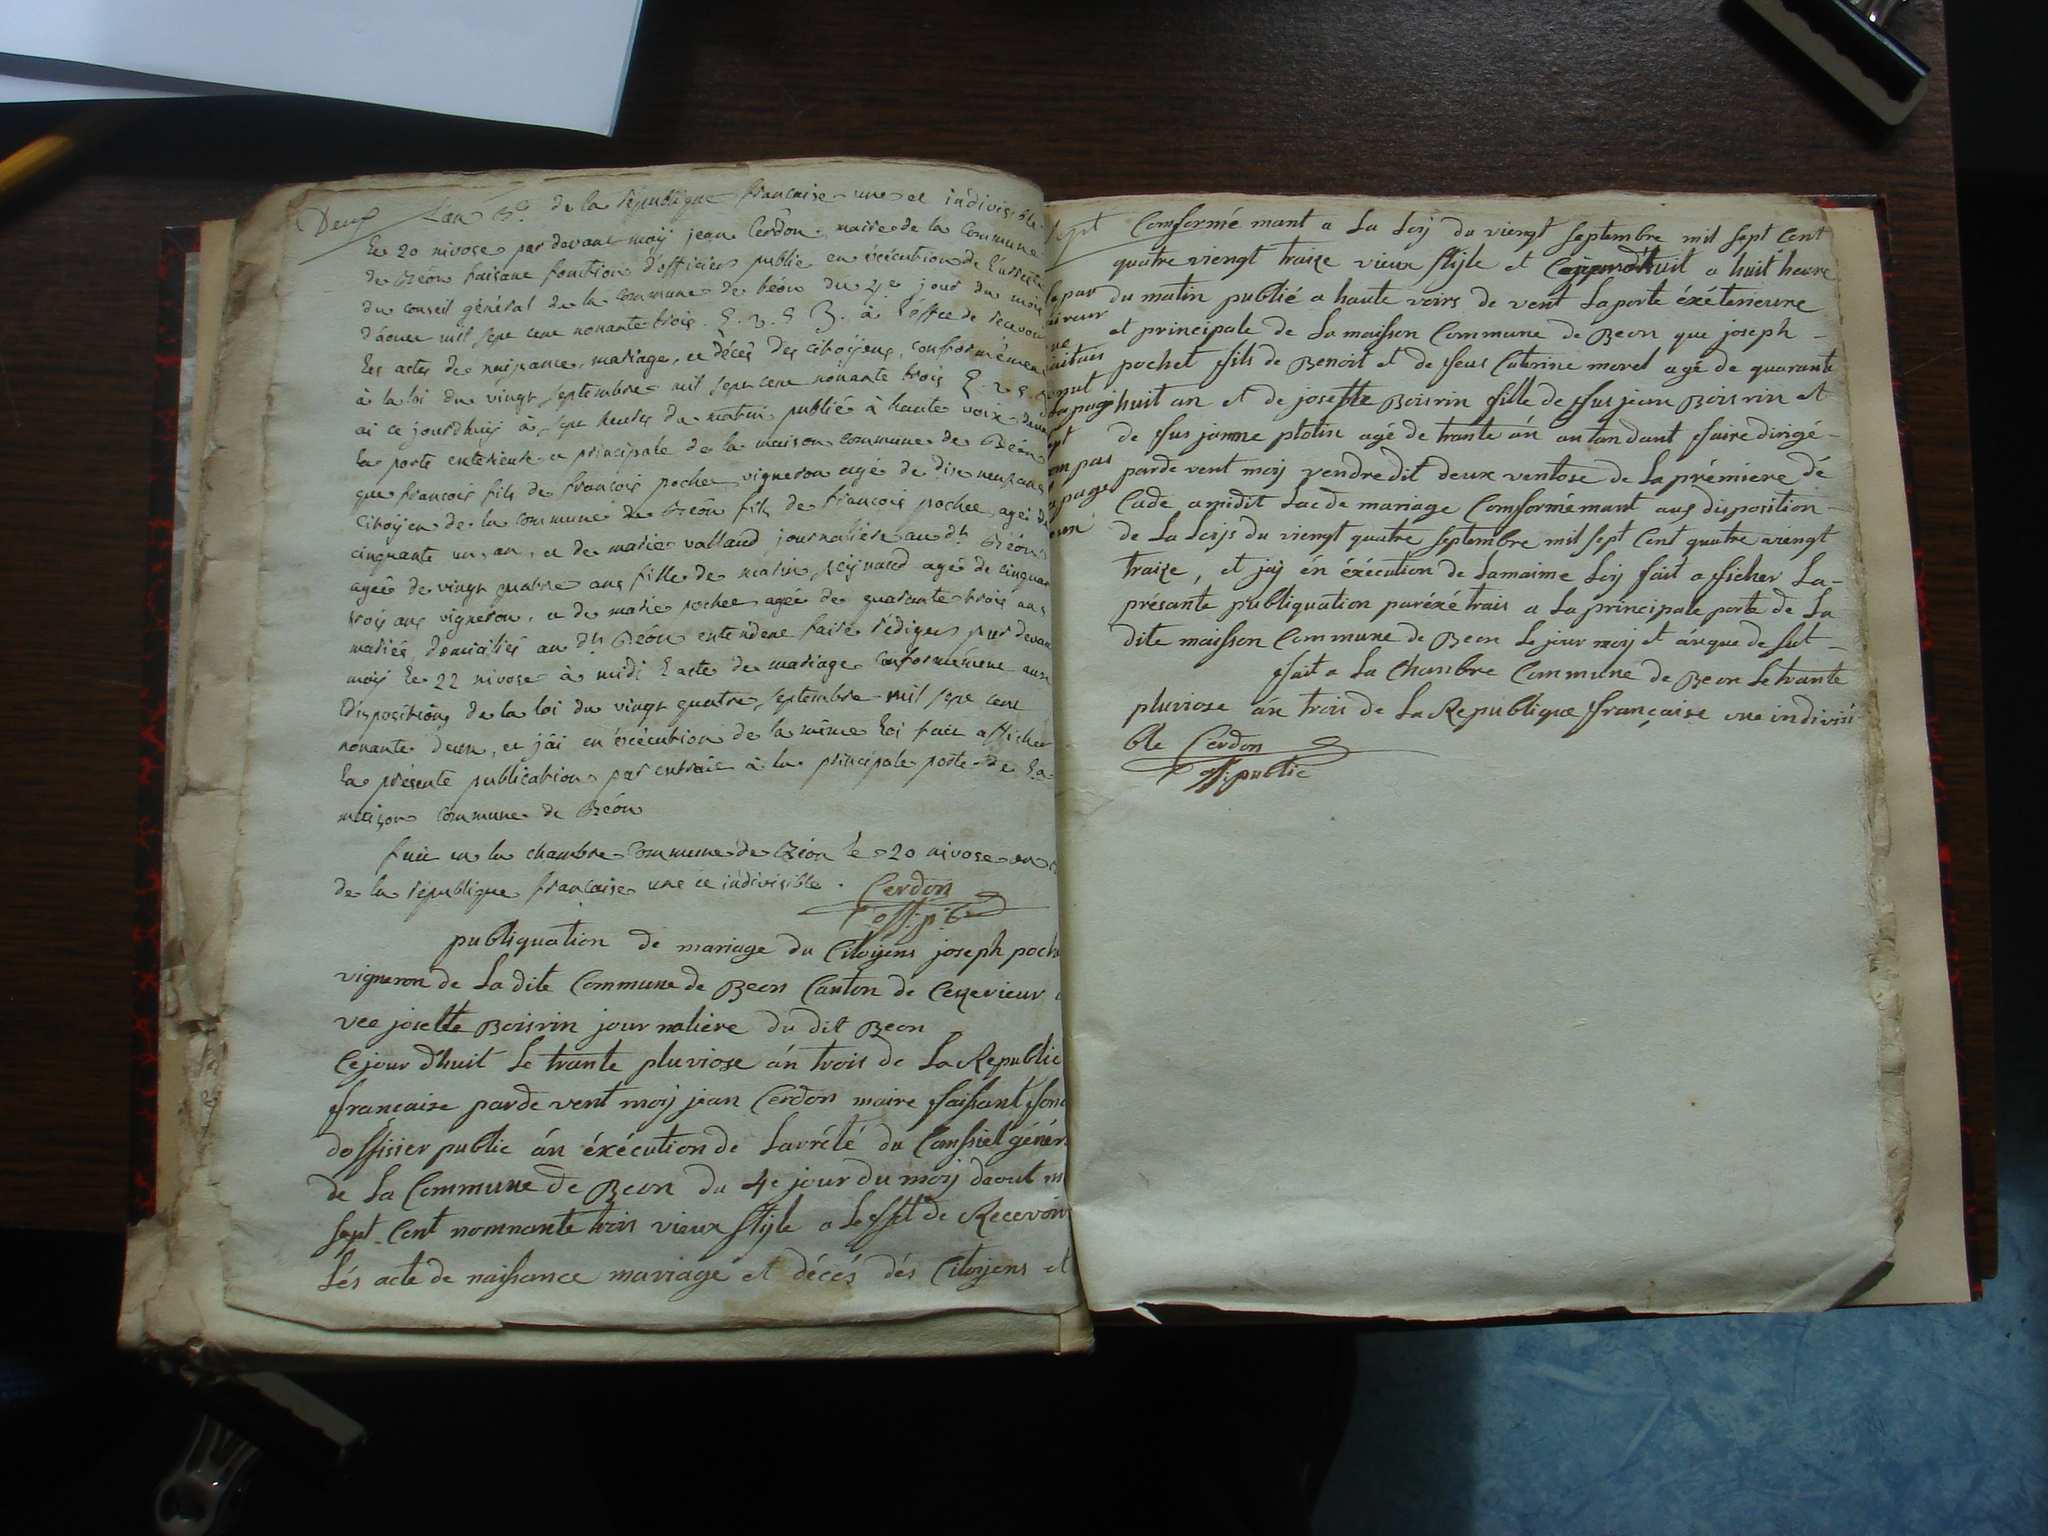 Deux L'an 3e de la république française une et indivisible
le 20 nivose par devant moÿ jean Cerdon, maire de la Commune
de Béon faisant fonction d'officier public en éxécution de l'arreté
du conseil général de la commune de béon du 4e jour du mois
d'aoust mil sept cent nonante trois à l'effet de recevoir
les actes de naissance, mariage, et décès des citoÿens, conformément
à la loi du vingt septembre mil sept cent nonante trois
ai ce jourdhuÿ à sept heures du matin publié à haute voix devant
la porte exterieure et principale de la maison commune de Béon
que francois fils de francois pochet vigneron agé de dix neuf ans
Citoÿen de la commune de Béon fils de francois pochet, agé de
cinquante un, an, et de marie vallaud journalière au dt Béon
agée de vingt quatre ans fille de reÿnaud agé de cinquante
trois ans vigneron, et de marie pochet agée de quarante trois ans
mariés, domiciliés au dt Béon entendent faire rédiger par devant
moÿ le 22 nivose à midi l'acte de mariage conformément aux
dispositions de la loi du vingt quatre septembre mil sept cent
nonante deux, et jái en éxécution de la même loi fait afficher
la présente publication par extrait à la principale porte de la
maison commune de Béon
fait en la chambre Commune de Béon le 20 nivose an 3
de la république française une et indivisible. Cerdon
off. p.
publiquation de mariage du Citoyens joseph poch
vigneron de La dite Commune de Beon Canton de Cezerieux a
vec joseltte Boisrin jour naliere du dit Beon
Cejour d'huit Le trante pluviose án trois de La Republic
francaise parde vent moij jean Cerdon maire faisant fonc
dossisier public án éxécution de Larrété du Conssiel génér
de La Commune de Beon du 4e jour du moij daout m
sept Cent nomnante trois vieux stijle a Leffet de Recevoir
Lés acte de naissance mariage et décés dés Citoijens et
Comformé mant a La Loij du viengt septembre mil sept Cent
quatre viengt traize vieux stijle et Cejourdhuit a huit heure
du matin publié a haute voirs de vent La porte éxéterieure
et principale de La maisson Commune de Beon que joseph
pochet fils de Benoit et de feus Caterine morel agé de quarante
huit an et de joseltte Boisrin fille de fus jean Boisrin et
de fus janne plotin agé de trante án antandant faire dirigé
parde vent moij vendredit deux ventose de La prémiere dé
Cade amidit Lacde mariage Comformémant aus disposition
de La Loijs du viengt quatre septembre mil sept Cent quatre viengt
traize, et jaij én éxécution de Lamaime Loij fait afficher La
présante publiquation paréxétrais a La principale porte de La
dite maisson Commune de Beon Le jour moij et ánque de sut
fait a La Chambre Commune de Beon Le trante
pluviose án trois de La Republique française une indivisi
ble Cerdon
off. public